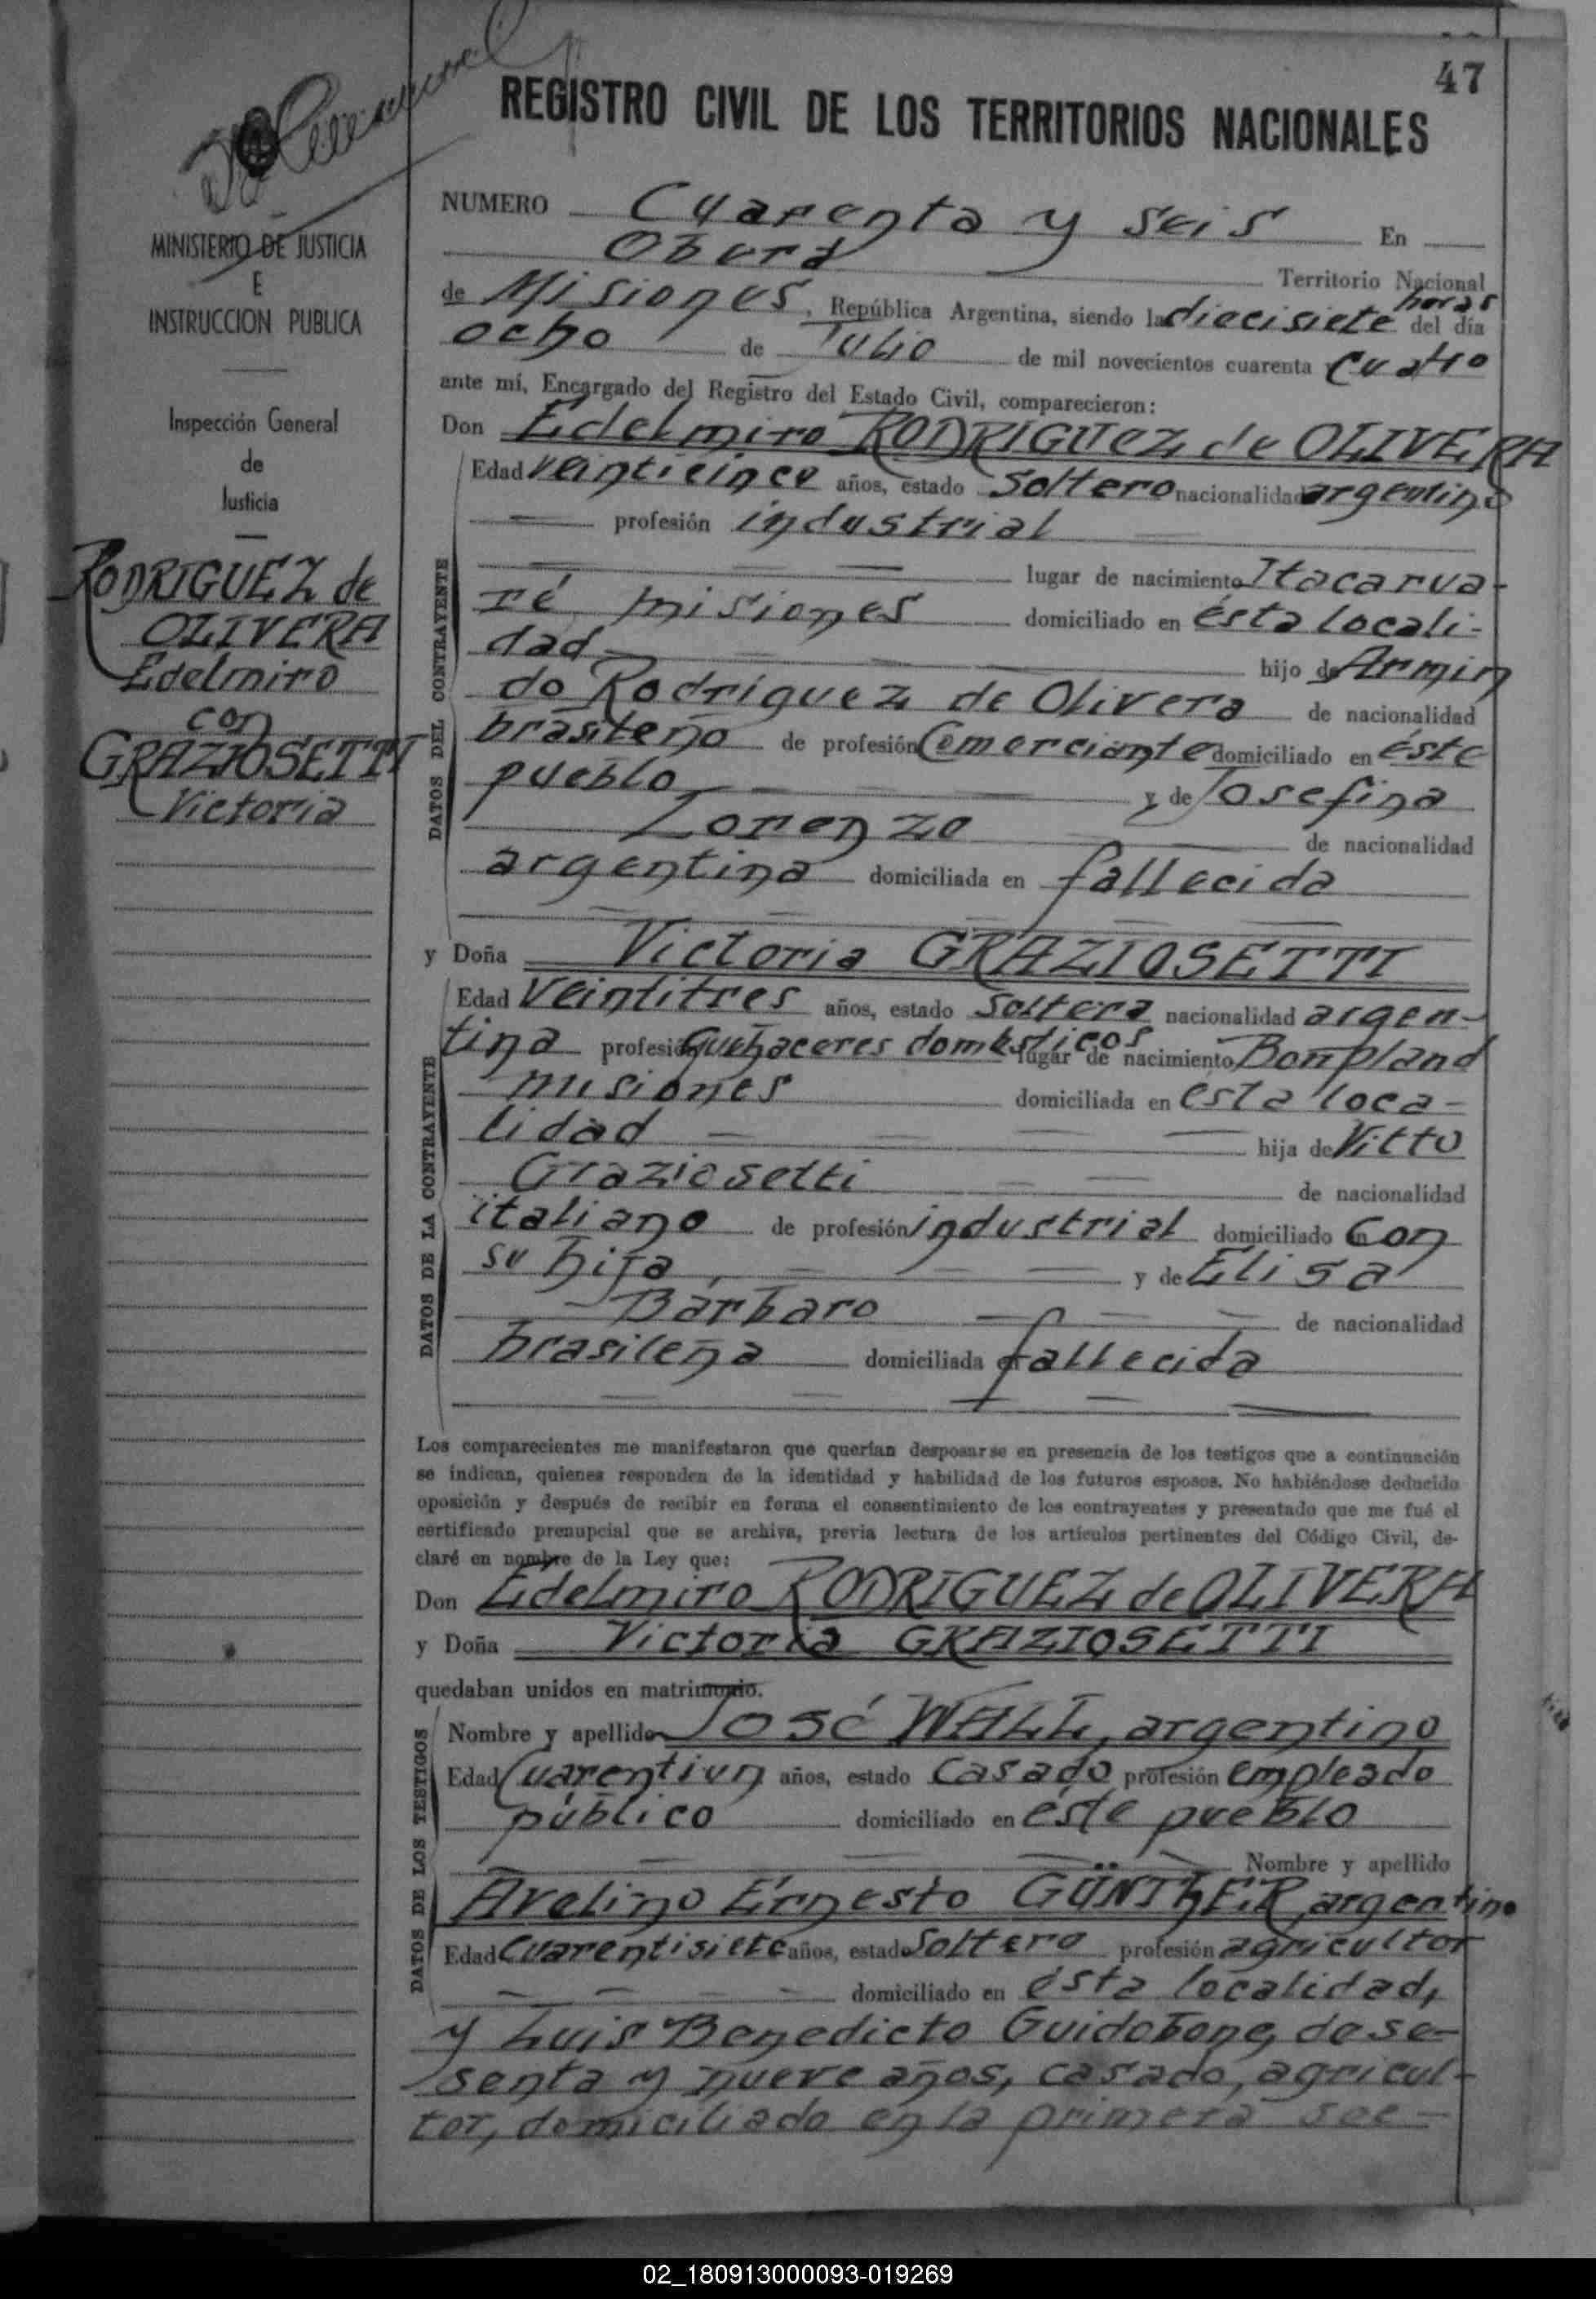 47
REGISTRO CIVIL DE LOS TERRITORIOS NACIONALES
MINISTERIO DE JUSTICIA
E
INSTRUCCION PUBLICA
Inspección General
de
Justicia
RODRIGUEZ de
OLIVERA
Edelmiro
con
GRAZIOSETTI
Victoria
NUMERO Cuarenta y seis En
Oberá Territorio Nacional
de Misiones, República Argentina, siendo las diecisiete horas del día
ocho de Julio de mil novecientos cuarenta cuatro
ante mí, Encargado del Registro del Estado Civil, comparecieron:
Don Edelmiro RODRIGUEZ de OLIVERA
DATOS DEL CONTRAYENTE
Edad veinticinco años, estado soltero nacionalidad argentino
profesión industrial
lugar de nacimiento Itacarua-
ré misiones domiciliado en ésta locali-
dad hijo de Armin
do Rodriguez de Olivera de nacionalidad
brasileño de profesión Comerciante domiciliado en éste
pueblo y de Josefina
Lorenzo de nacionalidad
argentina domiciliada en fallecida
y Doña Victoria GRAZIOSETTI
DATOS DE LA CONTRAYENTE
Edad veintitres años, estado soltera nacionalidad argen-
tina profesión Quehaceres domésticos lugar de nacimiento Bonpland
misiones domiciliada en esta loca-
lidad hija de Vitto
Graziosetti de nacionalidad
italiano de profesión industrial domiciliado en con
su hija y de Elisa
Bárbaro de nacionalidad
brasileña domiciliada en fallecida
Los comparecientes me manifestaron que querían desposarse en presencia de los testigos que a continuación
se indican, quienes responden de la identidad y habilidad de los futuros esposos. No habiéndose deducido
oposición y después de recibir en forma el consentimiento de los contrayentes y presentado que me fué el
certificado prenupcial que se archiva, previa lectura de los artículos pertinentes del Código Civil, de-
claré en nombre de la Ley que:
Don Edelmiro RODRIGUEZ de OLIVERA
y Doña Victoria GRAZIOSETTI
quedaban unidos en matrimonio.
DATOS DE LOS TESTIGOS
Nombre y apellido José WALL, argentino
Edad Cuarentiun años, estado casado profesión empleado
público domiciliado en éste pueblo
Nombre y apellido
Avelino Ernesto GÜNTHER, argentino
Edad cuarentisiete años, estado soltero profesión agricultor
domiciliado en ésta localidad,
y Luis Benedicto Guidobono, de se-
senta y nueve años, casado, agricul-
tor, domiciliado en la primera sec-
02_180913000093-019269